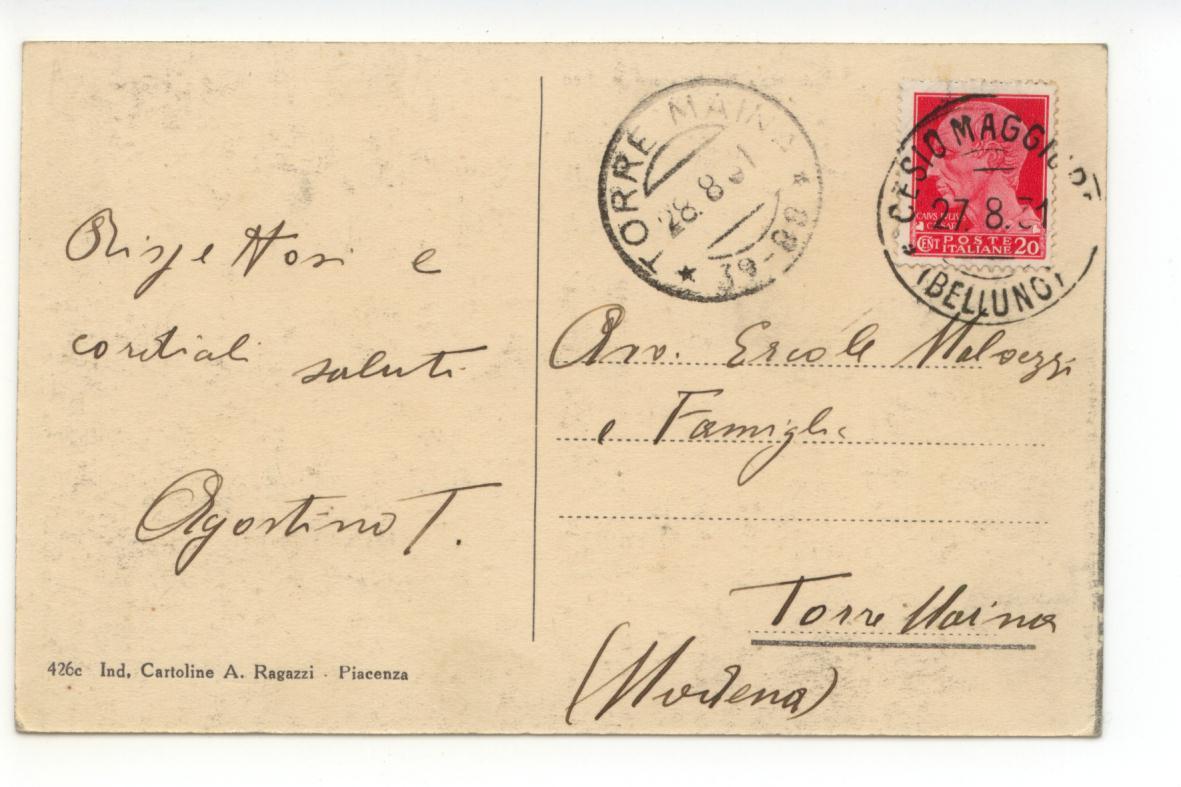 TORRE MAINA
28.8.31
39-88
CESIO MAGGIORE
27.8.31
(BELLUNO)
CAIVS IVLIVS
CAESAR
CENT POSTE ITALIANE 20
Rispettosi e
cordiali saluti
Agostino T.
Avv. Ercole Malvezzi
e Famiglia
Torre Maina
(Modena)
426c Ind, Cartoline A. Ragazzi - Piacenza